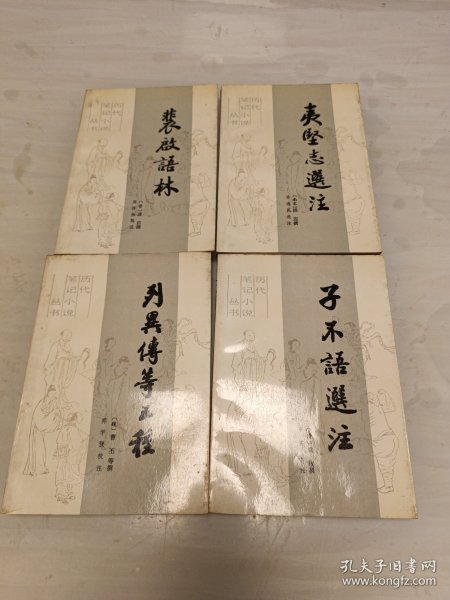 历代
笔记小说
丛书
裴啟語林
历代
笔记小说
丛书
夷堅志選注
历代
笔记小说
丛书
列異傳等五種
(魏)曹丕等撰
郑学弢校注
历代
笔记小说
丛书
子不語選注
孔夫子旧书网
www.kongfz.com